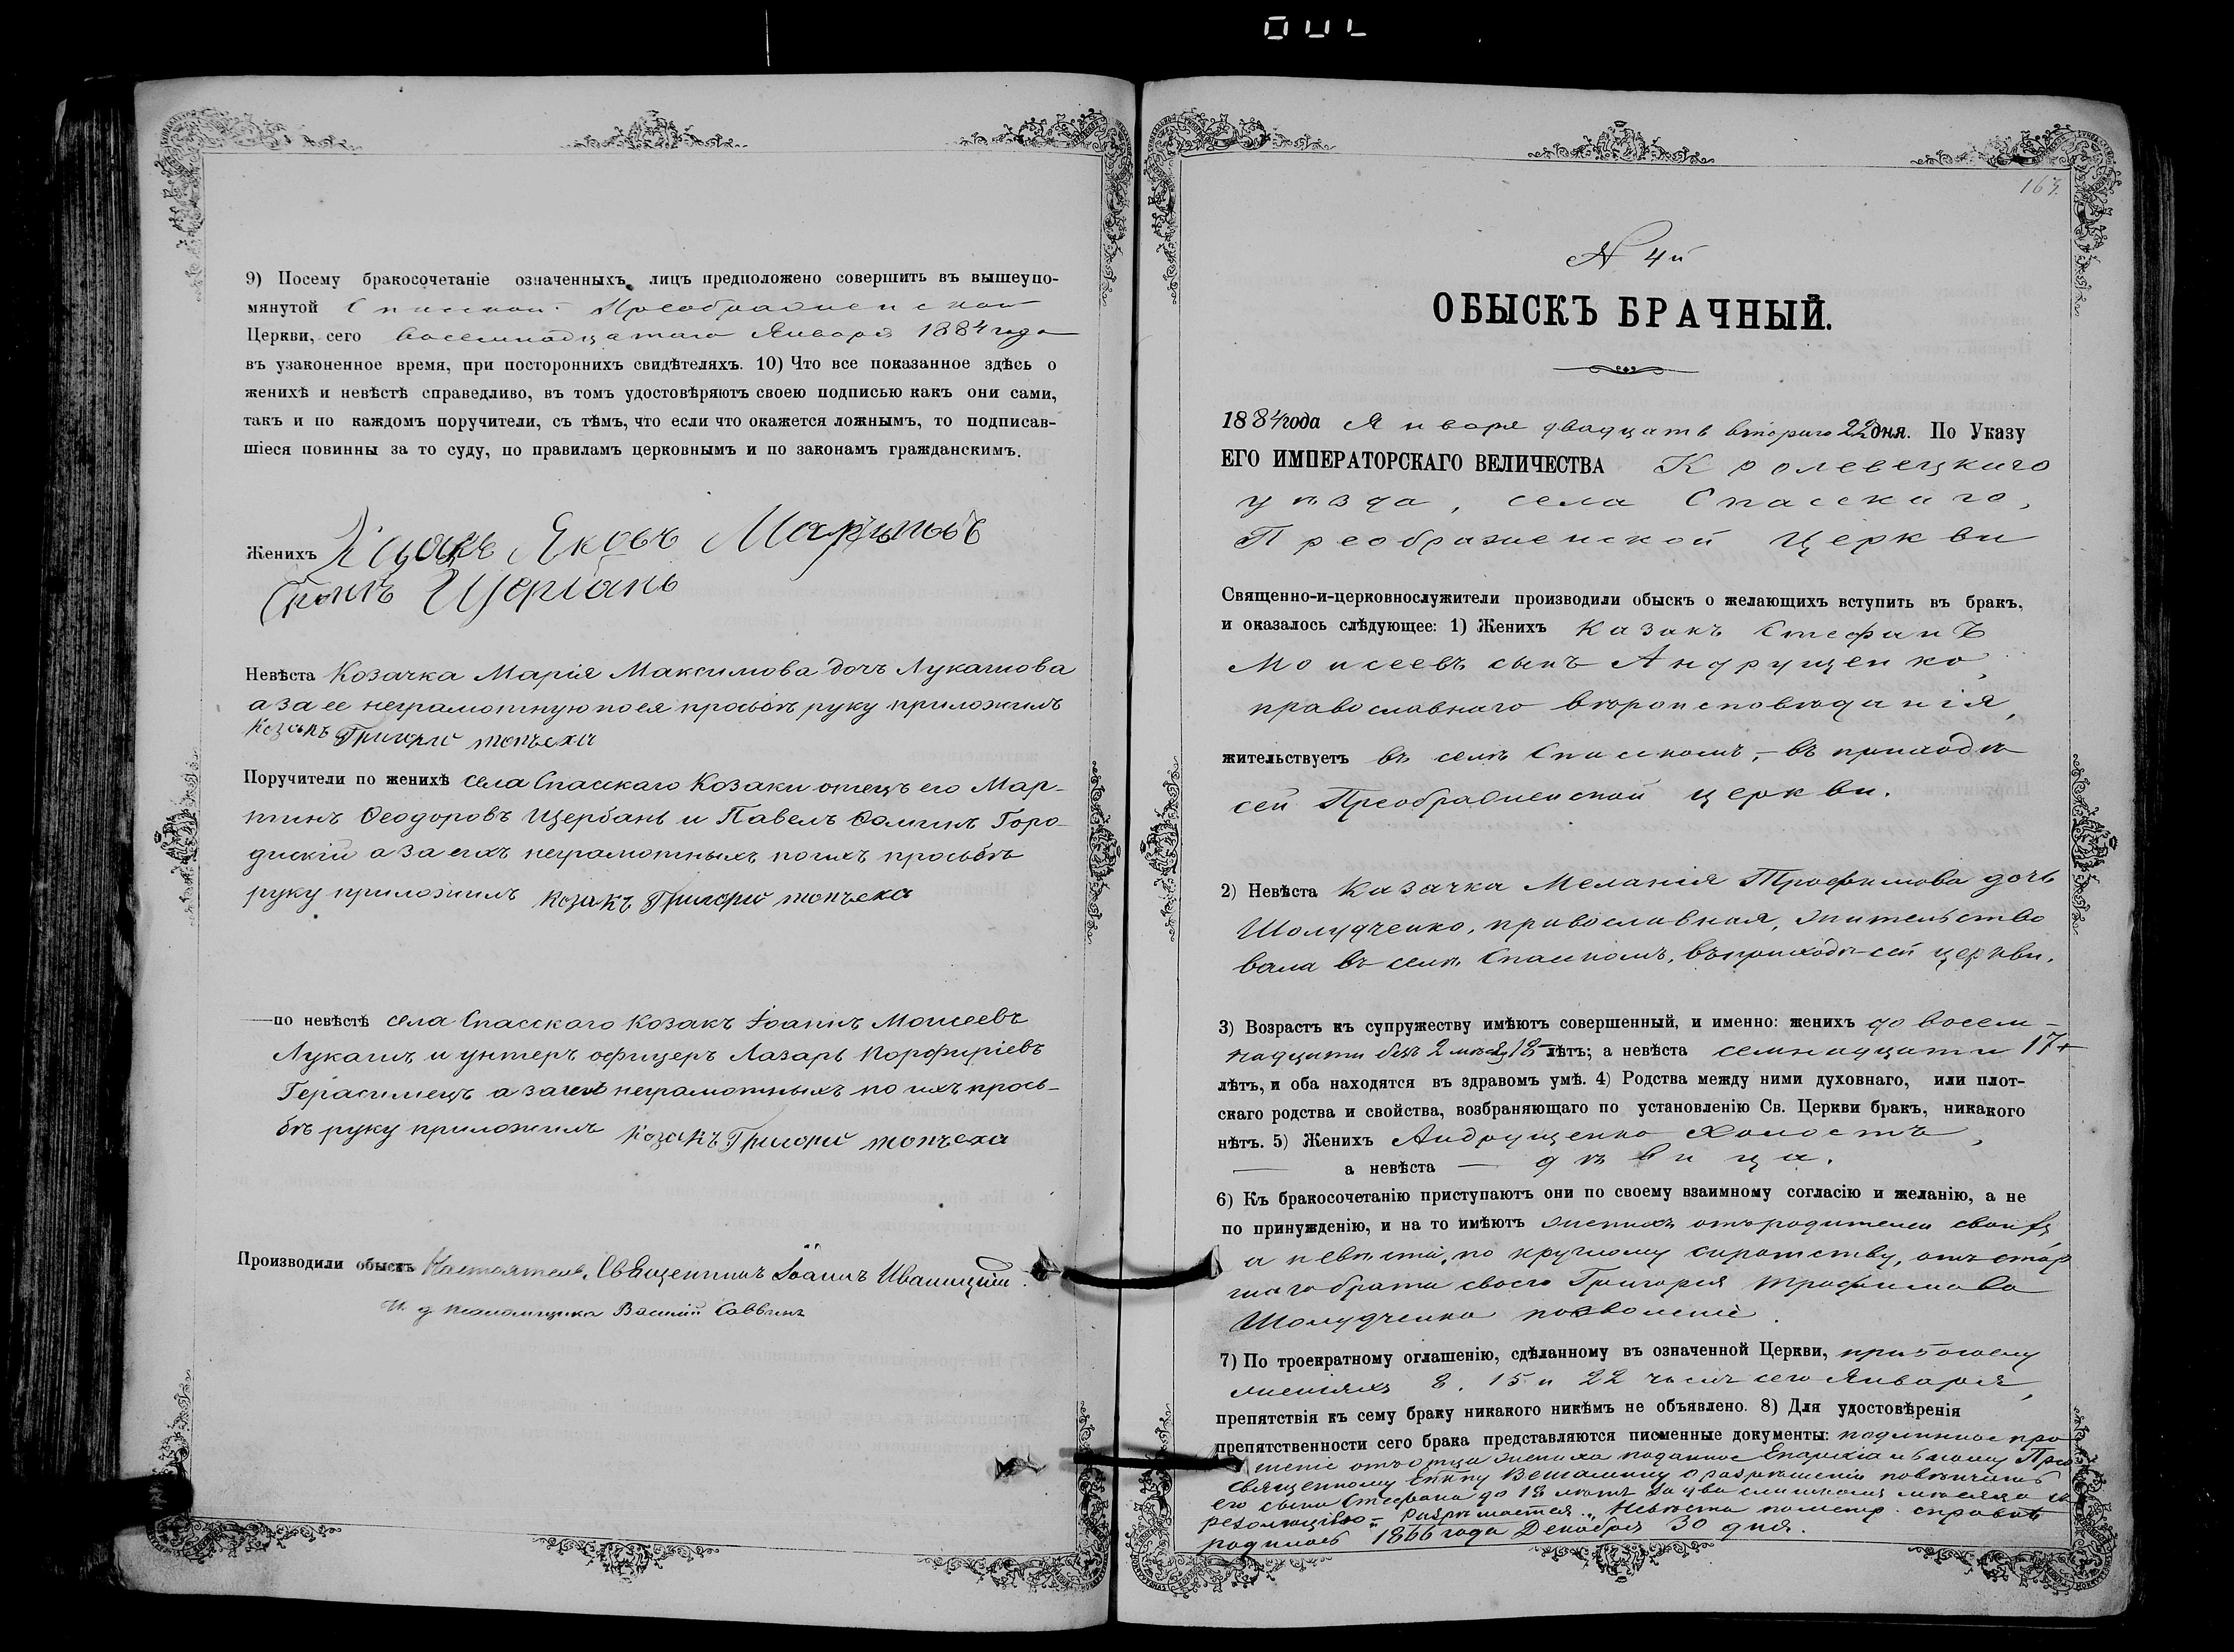 9) Посему бракосочетаніе означенныхъ лицъ предположено совершить въ вышеупо-
мянутой Спасской Преображенской
Церкви, сего восемнадцатаго Января 1884 года
въ узаконенное время, при постороннихъ свидѣтеляхъ. 10) Что все показанное здѣсь о
женихѣ и невѣстѣ справедливо, въ томъ удостовѣряютъ своею подписью какъ они сами,
такъ и по каждомъ поручители, съ тѣмъ, что если что окажется ложнымъ, то подписав-
шіеся повинны за то суду, по правиламъ церковнымъ и по законамъ гражданскимъ.
Женихъ Яковъ
Щербань
Невѣста Козачка Марія Максимова дочь Лукашова
а за ее неграмотную по ея прозьбѣ руку приложилъ
Козакъ Григорій топчеха
Поручители по женихѣ села Спасскаго Козаки отецъ его Мар-
тинъ Ѳеодоровъ Щербань и Павелъ Ѳоминъ Горо-
дискій а за ихъ неграмотныхъ по ихъ прозьбѣ
руку приложилъ Козакъ Григорій топчеха
—по невѣстѣ села Спасскаго Козакъ Іоаннъ Моисеевъ
Лукашъ и унтеръ офицеръ Лазарь Порфиріевъ
Герасимецъ а за ихъ неграмотныхъ по ихъ прозь-
бѣ руку приложилъ Козакъ Григорій топчеха
Производили обыскъ Настоятель, Священникъ Іоаннъ Иваницкій.
И. д. псаломщика Василій Саввинъ
163.
N 4й
ОБЫСКЪ БРАЧНЫЙ.
1884 года Января двадцать втораго 22 дня. По Указу
ЕГО ИМПЕРАТОРСКАГО ВЕЛИЧЕСТВА Кролевецкаго
уѣзда, села Спасскаго,
Преображенской Церкви
Священно-и-церковнослужители производили обыскъ о желающихъ вступить въ бракъ,
и оказалось слѣдующее: 1) Женихъ Казакъ Стефанъ
Моисеевъ сынъ Андрущенко,
православнаго вѣроисповѣданія,
жительствуетъ въ селѣ Спасскомъ, – въ приходѣ
сей Преображенской церкви.
2) Невѣста Казачка Меланія Трофимова дочь
Шолудченко, православная, жительство
вала въ селѣ Спасскомъ, въ приходѣ сей церкви.
3) Возрастъ къ супружеству имѣютъ совершенный, и именно: женихъ до восем-
надцати безъ 2 мѣсяц 18 лѣтъ; а невѣста семнадцати 17
лѣтъ, и оба находятся въ здравомъ умѣ. 4) Родства между ними духовнаго, или плот-
скаго родства и свойства, возбраняющаго по установленію Св. Церкви бракъ, никакого
нѣтъ. 5) Женихъ Андрущенко холостъ,
а невѣста — дѣвица.
6) Къ бракосочетанію приступаютъ они по своему взаимному согласію и желанію, а не
по принужденію, и на то имѣютъ женихъ отъ родителей своихъ
а невѣста, по круглому сиротству, отъ стар
шаго брата своего Григорія Трофимова
Шолудченка позволеніе.
7) По троекратному оглашенію, сдѣланному въ означенной Церкви, при богослу
женіяхъ 8, 15 и 22 чиселъ сего Января,
препятствія къ сему браку никакого никѣмъ не объявлено. 8) Для удостовѣренія
препятственности сего брака представляются письменные документы: подлинное про
шеніе отъ отца жениха поданное Епархіальному Прео
священному Епископу Веніамину о разрѣшеніи повѣнчать
его сына Стефана до 18 лѣтъ за два слишкомъ мѣсяца съ
резолюціею – „Разрѣшается„. Невѣста по метр. справкѣ
родилась 1866 года Декабря 30 дня.